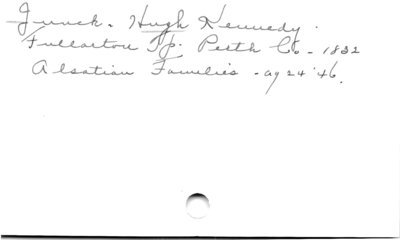 Junck. Hugh Kennedy.
Fullarton Tp. Perth Co. - 1832
Alsatian Families - ag 24 '46.